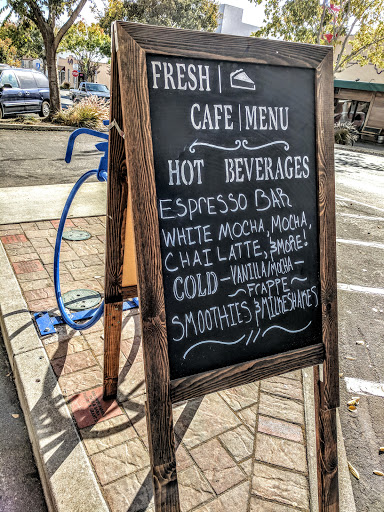 FRESH |
CAFE | MENU
HOT BEVERAGES
ESPRESSO BAR
WHITE MOCHA, MOCHA,
CHAI LATTE, & MORE!
COLD - VANILLA/MOCHA -
~ FRAPPE ~
SMOOTHIES & MILKSHAKES